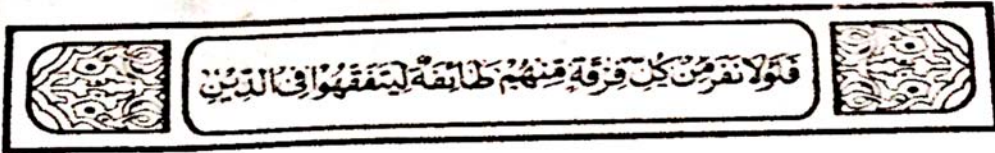 فَلَوْلَا نَفَرَ مِنْ كُلِّ فِرْقَةٍ مِّنْهُمْ طَائِفَةٌ لِّيَتَفَقَّهُوا فِي الدِّينِ